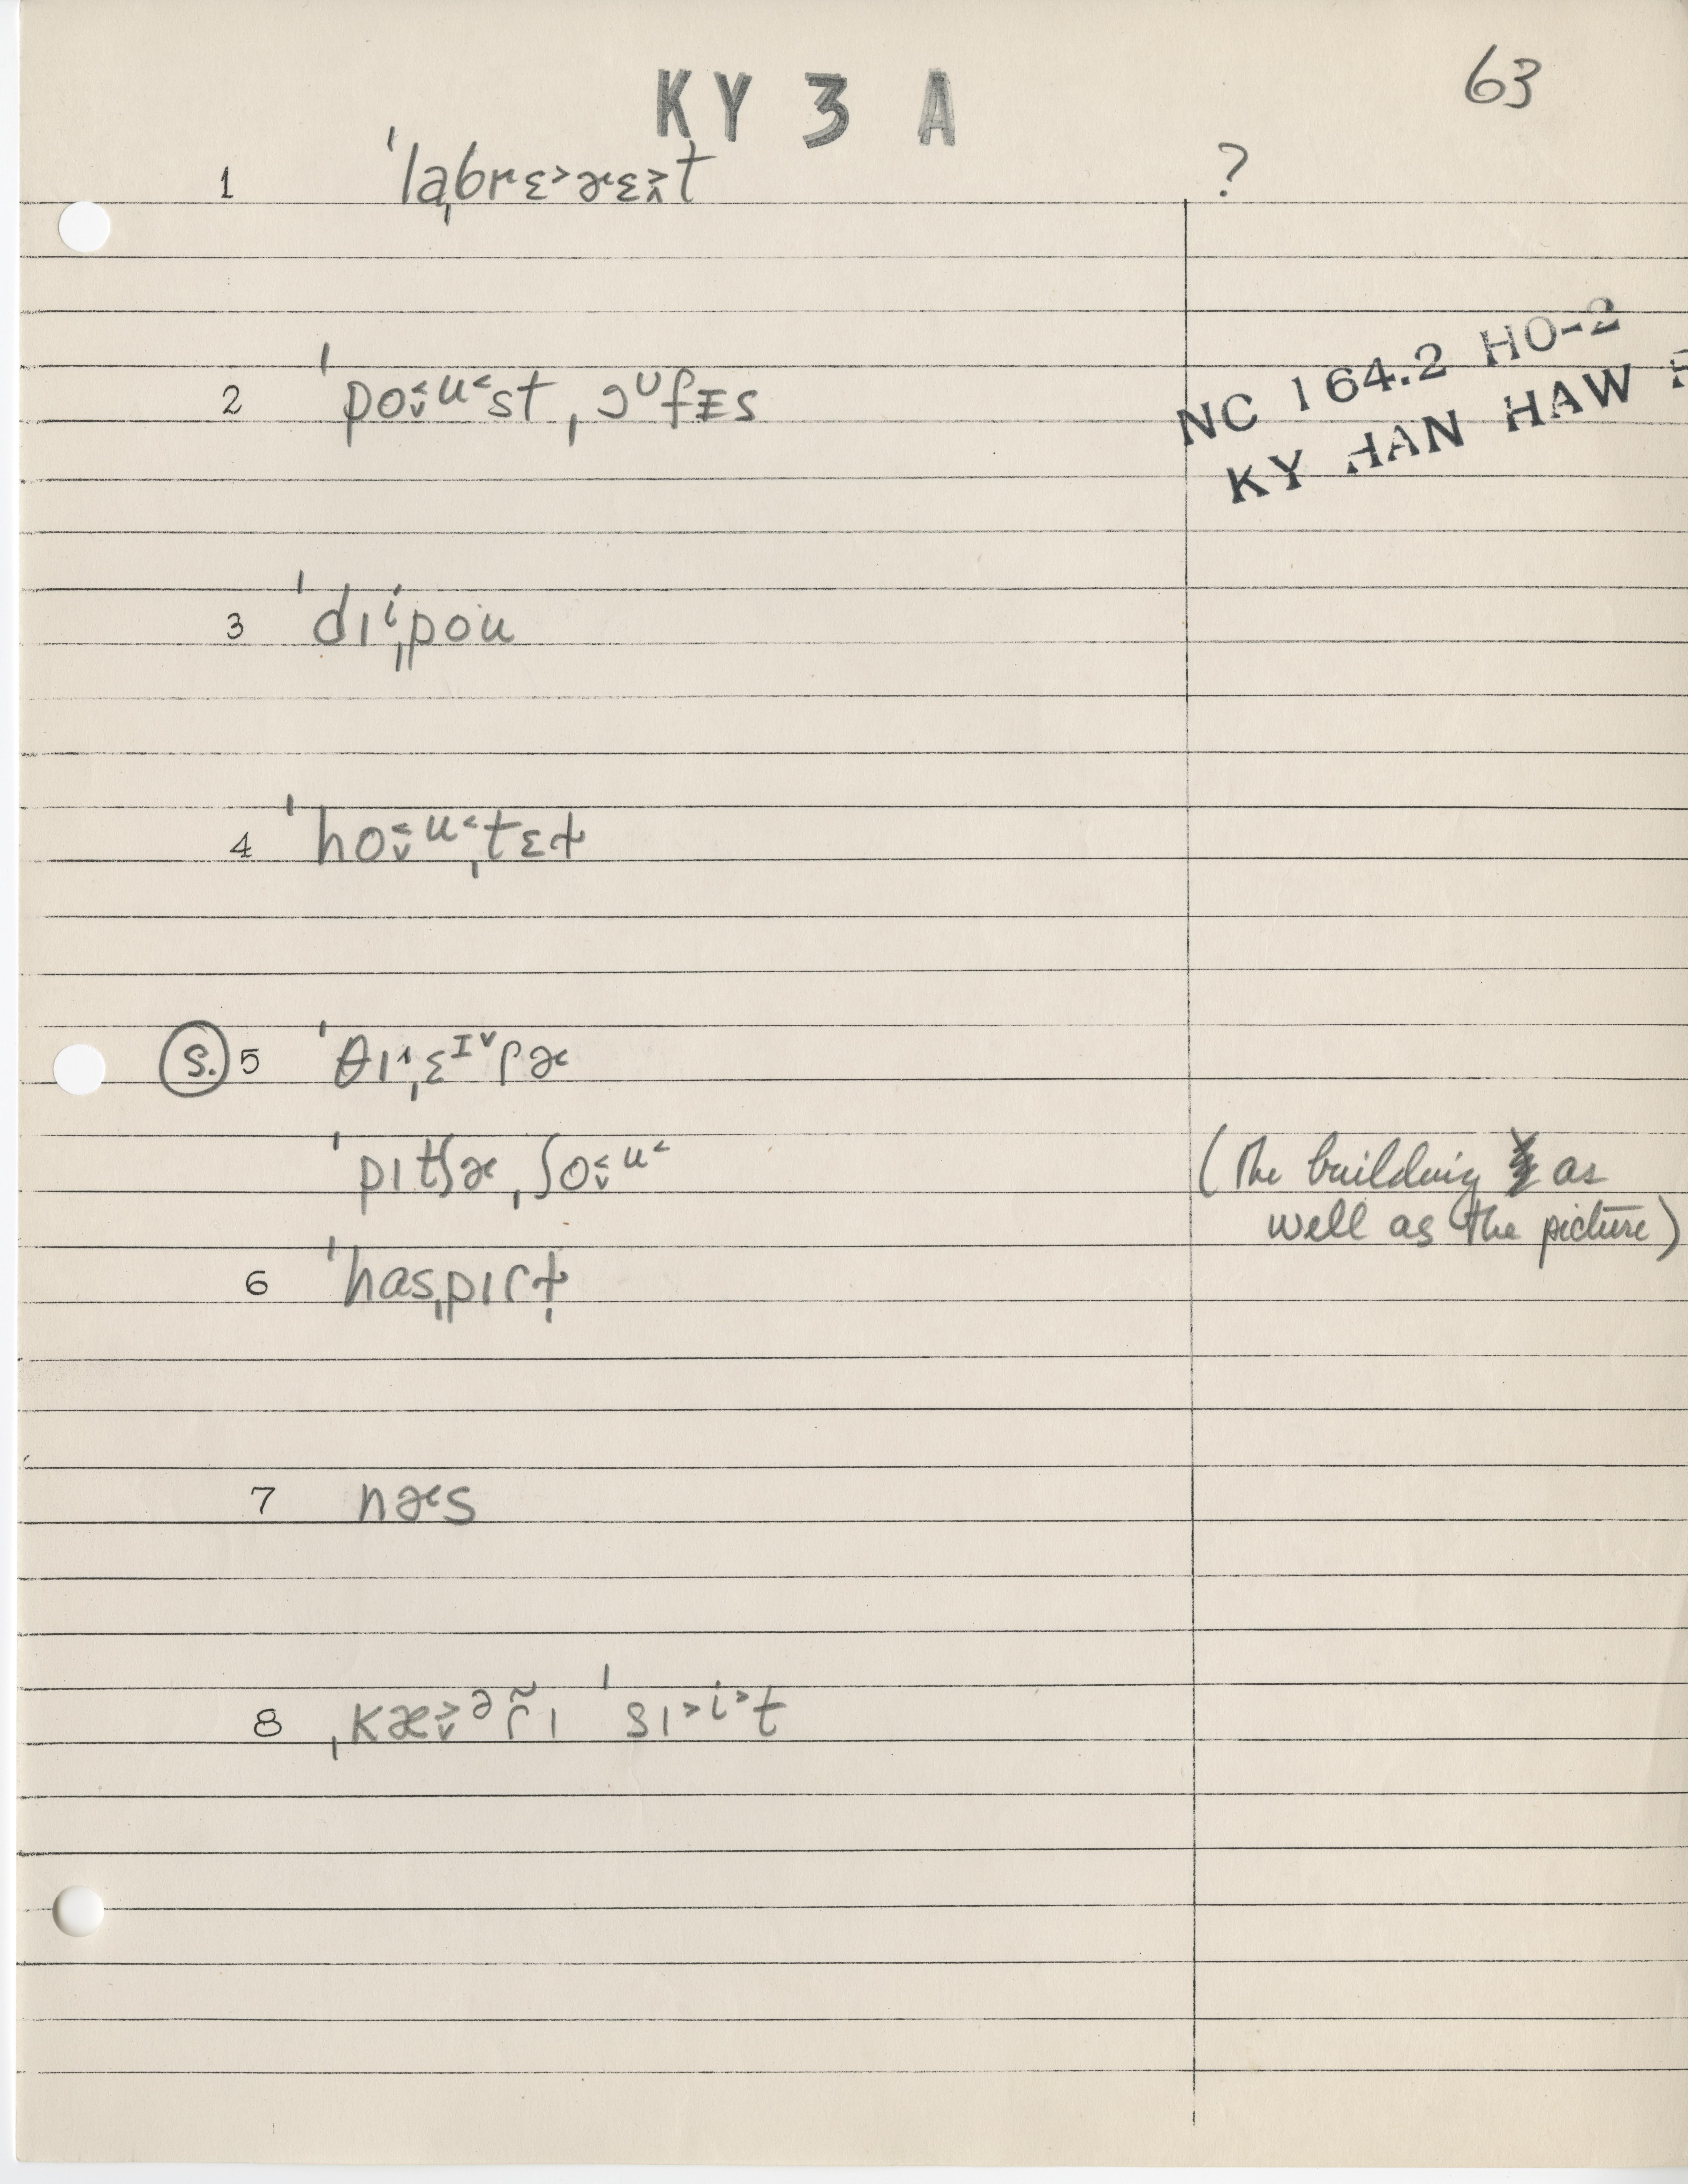 KY 3 A
63
1 ˈla̩brɛ˃ɚɛ˃t ?
NC 164.2 HO-2
2 ˈpo˂̬ᵘ˂st ˌɔᶷfɪs
KY HAN HAW
3 ˈdɪⁱˌpou
4 ˈho˂̬ᵘ˂ˌtɛɫ
S. 5 ˈθɪ^ˌɛᴵ˅ɾɚ
ˈpɪtʃɚ ˌʃo˂̬ᵘ˂
(The building as
well as the picture)
6 ˈhasˌpɪɾɫ̩
7 nɚs
8 ˌkæ˃̬ᵊɾ̃ɪ ˈsɪ˃ⁱ˃t